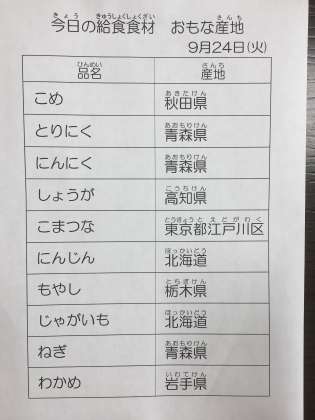 今日の給食食材 おもな産地
9月24日(火)
品名 産地
こめ 秋田県
とりにく 青森県
にんにく 青森県
しょうが 高知県
こまつな 東京都江戸川区
にんじん 北海道
もやし 栃木県
じゃがいも 北海道
ねぎ 青森県
わかめ 岩手県